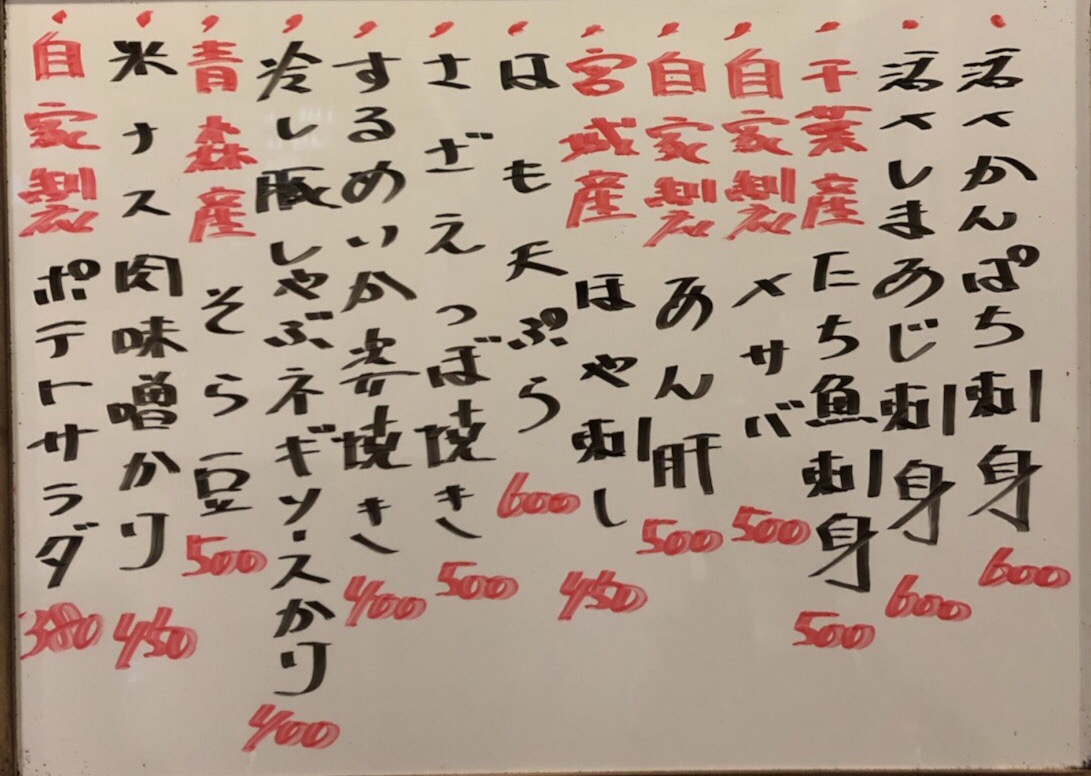 活〆かんぱち刺身 600
活〆しまあじ刺身 600
千葉産 たち魚刺身 500
自家製 〆サバ 500
自家製 あん肝 500
宮城産 ほや刺し 450
はも天ぷら 600
さざえつぼ焼き 500
するめいか姿焼き 400
冷し豚しゃぶネギソースかけ 400
青森産 そら豆 500
米ナス肉味噌かけ 450
自家製 ポテトサラダ 380